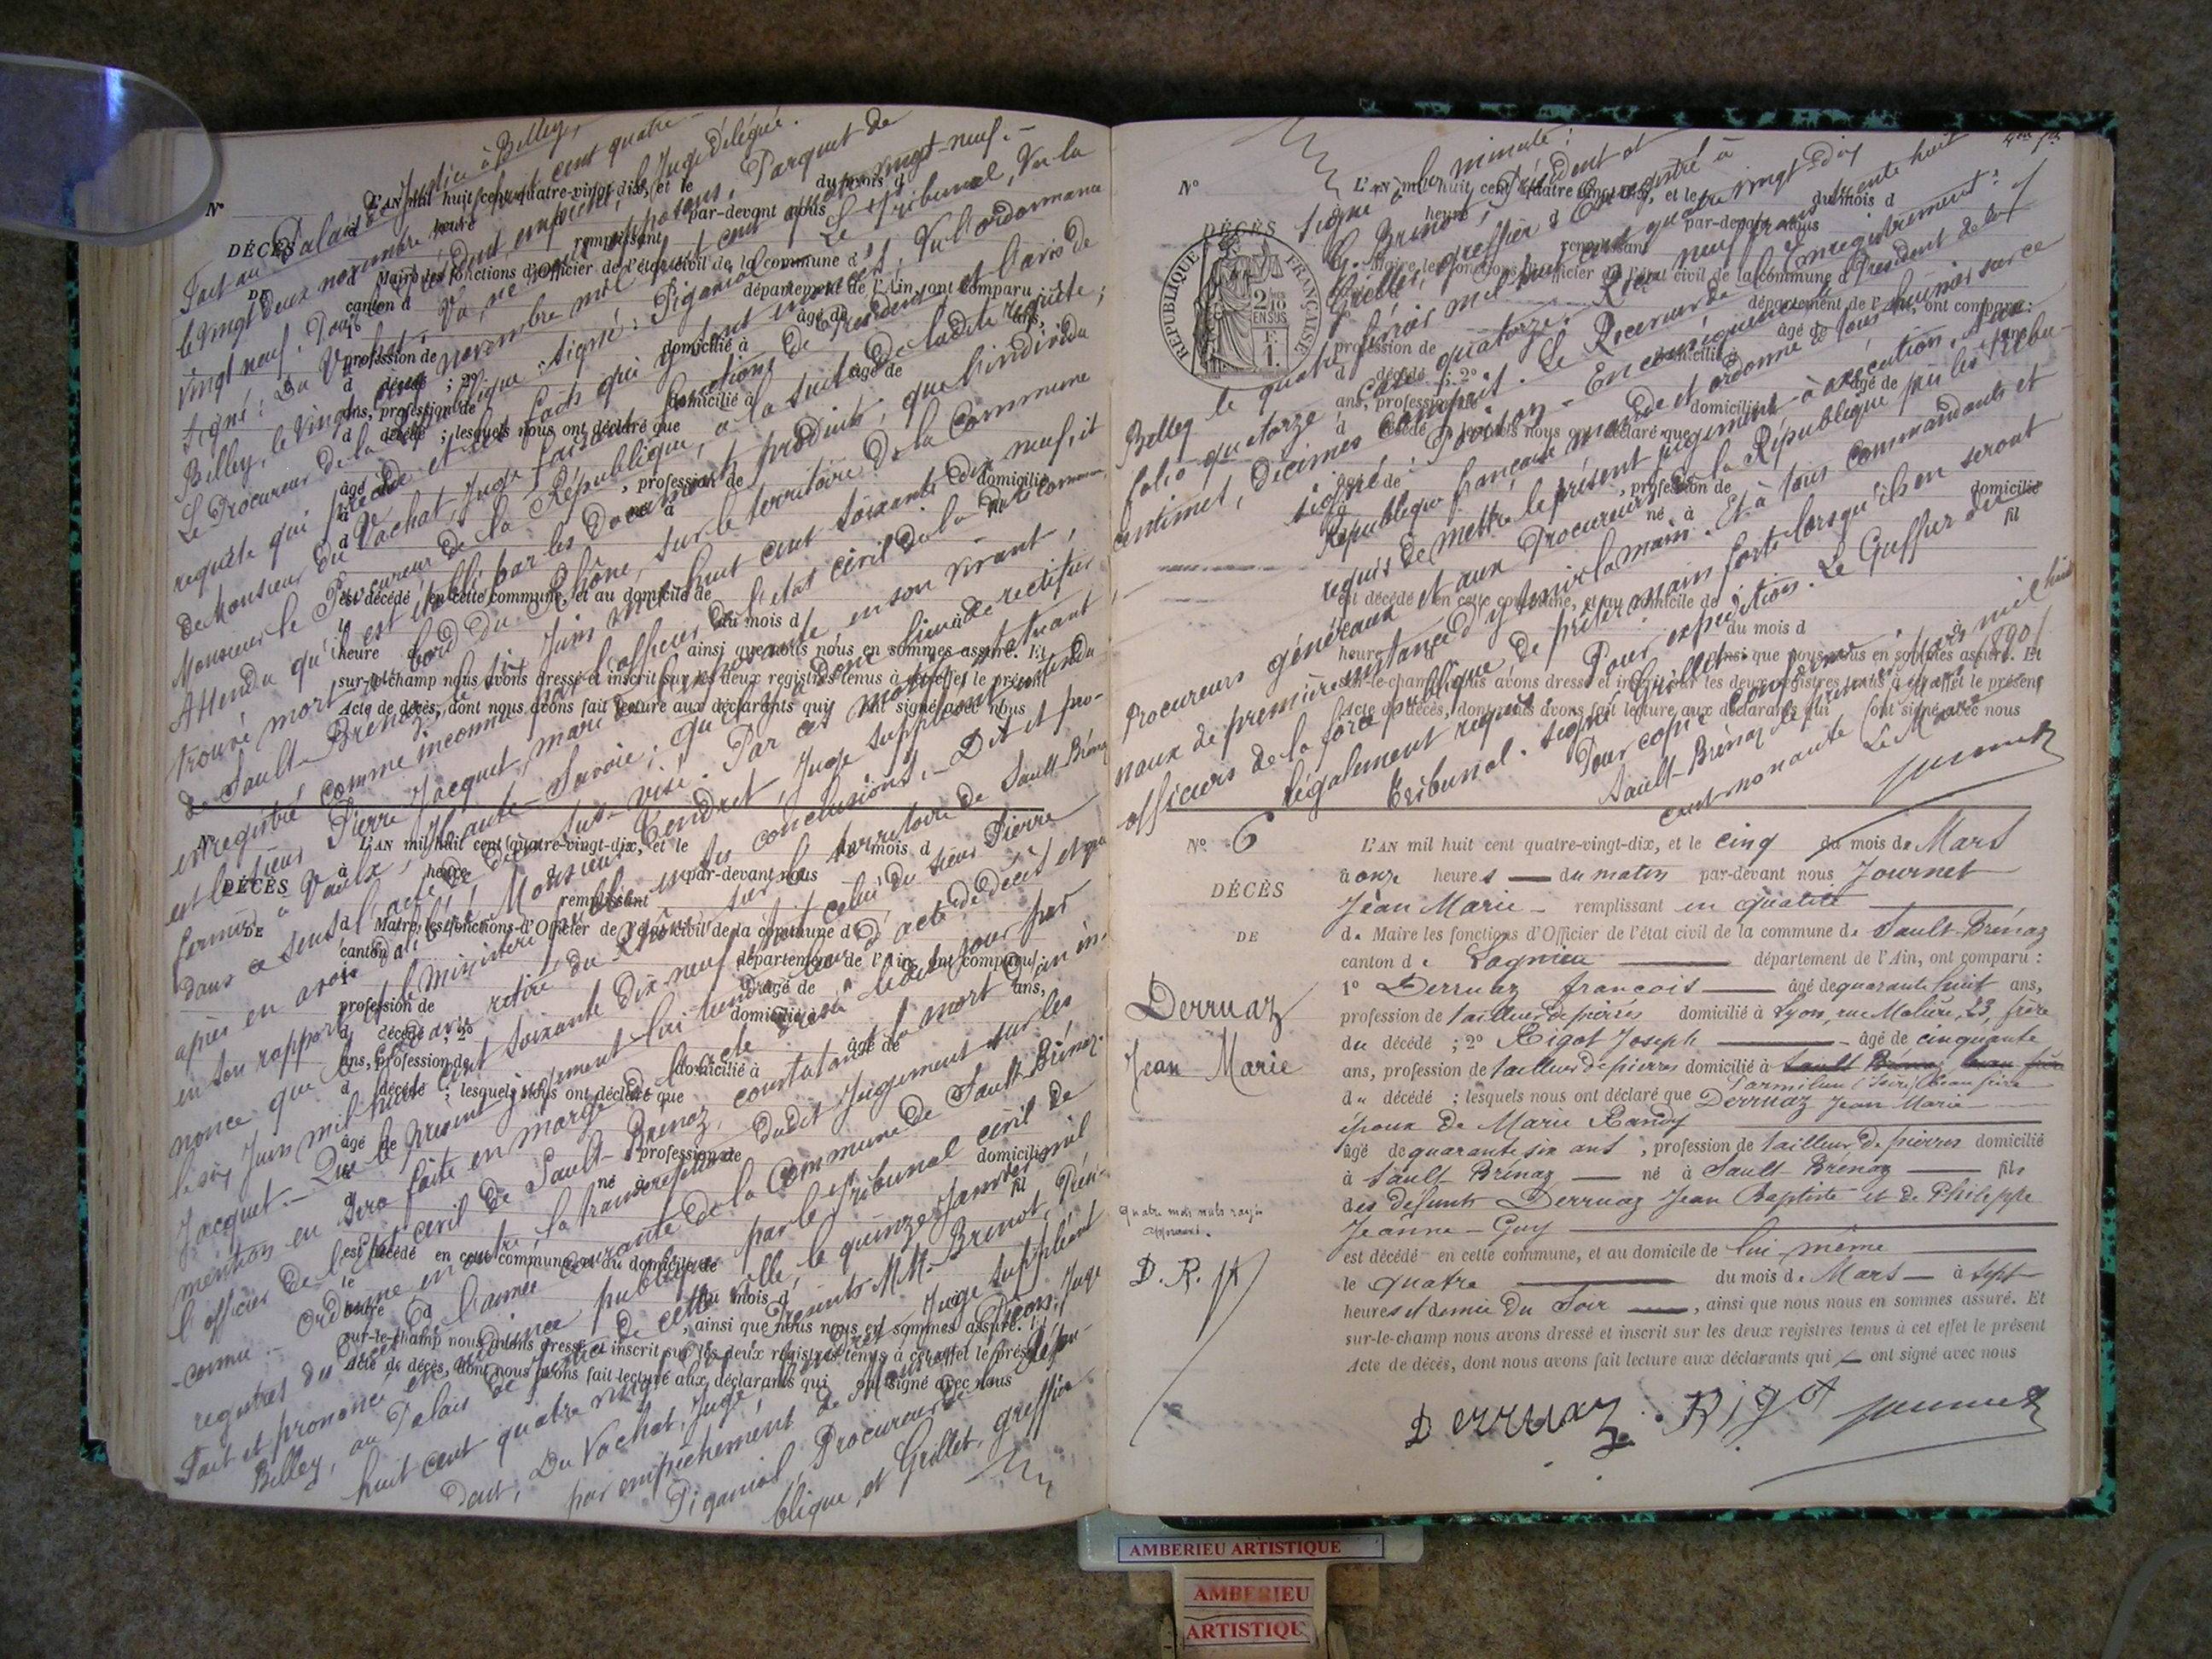 Fait au Palais de Justice à Belley,
le vingt deux novembre mil huit cent quatre-
vingt neuf. Pour le Président empêché, le Juge délégué.
signé: Du Vachat. Vu, ne nous opposons, Parquet de
Belley, le vingt cinq novembre mil huit cent quatre vingt-neuf.-
Le Procureur de la République: signé: Piganiol. Le Tribunal, Vu la
requête qui précède et les faits qui y sont énoncés; Vu l'ordonnance
de Monsieur Du Vachat, Juge faisant fonctions de Président et l'avis de
Monsieur le Procureur de la République, à la suite de ladite requête;
Attendu qu'il est établi par les documents produits, que l'individu
trouvé mort au bord du Rhône, sur le territoire de la Commune
de Sault-Brénaz, le six Juin mil huit cent soixante dix neuf, et
enregistré comme inconnu par l'officier de l'état civil de la dite commune,
est le sieur Pierre Jacquet, mari de l'exposante, en son vivant,
fermier à Vaulx, Haute-Savoie; qu'il y a donc lieu de rectifier
dans ce sens l'acte de décès sus-visé. Par ces motifs, statuant
après en avoir délibéré, Monsieur Tendret, Juge suppléant entendu
en son rapport, et le ministère public en ses conclusions,- Dit et pro-
nonce que le cadavre retiré du Rhône sur le territoire de Sault-Brénaz
le six Juin mil huit cent soixante dix-neuf était celui du sieur Pierre
Jacquet.- Que le présent jugement lui tiendra lieu d'acte de décès et que
mention en sera faite en marge de l'acte dressé le dit jour par
l'officier de l'Etat civil de Sault-Brénaz, constatant la mort d'un in-
-connu.- Ordonne en outre la transcription dudit Jugement sur les
registres des décès de l'année courante de la Commune de Sault-Brénaz.
Fait et prononcé en audience publique par le Tribunal civil de
Belley, au Palais de Justice de cette ville, le quinze Janvier mil
huit cent quatre vingt dix, Présents MM. Brinot, Prési-
dent, Du Vachat, Juge, Tendret Juge suppléant
par empêchement de Monsieur Picon, Juge
Piganiol, Procureur de la Répu-
blique, et Grillet, greffier.
N° L'AN mil huit cent quatre-vingt-dix, et le du mois d
DÉCÈS
DE
à heure d par-devant nous
remplissant
d Maire les fonctions d'Officier de l'état civil de la commune d
canton d département de l'Ain, ont comparu:
1° âgé de ans,
profession de domicilié à
d décédé ; 2° âgé de
ans, profession de domicilié à
d décédé ; lesquels nous ont déclaré que
âgé de , profession de domicilié
à né à fil
d
est décédé en cette commune, et au domicile de
le du mois d à
heure d , ainsi que nous nous en sommes assuré. Et
sur-le-champ nous avons dressé et inscrit sur les deux registres tenus à cet effet le présent
Acte de décès, dont nous avons fait lecture aux déclarants qui ont signé avec nous
N° L'AN mil huit cent quatre-vingt-dix, et le du mois d
DÉCÈS
DE
à heure d par-devant nous
remplissant
d Maire les fonctions d'Officier de l'état civil de la commune d
canton d département de l'Ain, ont comparu:
1° âgé de ans,
profession de domicilié à
d décédé ; 2° âgé de
ans, profession de domicilié à
d décédé ; lesquels nous ont déclaré que
âgé de , profession de domicilié
à né à fil
d
est décédé en cette commune, et au domicile de
le du mois d à
heure d , ainsi que nous nous en sommes assuré. Et
sur-le-champ nous avons dressé et inscrit sur les deux registres tenus à cet effet le présent
Acte de décès, dont nous avons fait lecture aux déclarants qui ont signé avec nous
signé à la minute:
G. Brinot, Président et
Grillet, greffier. Enregistré à
Belley le quatre février mil huit cent quatre vingt dix
folio quatorze case quatorze. Reçu neuf francs trente huit
centimes, décimes compris. Le Receveur de l'Enregistrement:
signé: En conséquence le Président de la
République française mande et ordonne à tous huissiers sur ce
requis de mettre le présent jugement à exécution, Aux
Procureurs généraux et aux Procureurs de la République près les Tribu-
naux de première instance d'y tenir la main. Et à tous commandants et
officiers de la force publique de prêter main forte lorsqu'ils en seront
légalement requis. Pour expédition. Le Greffier du
Tribunal. signé: Grillet.
Pour copie conforme:
Sault-Brénaz le premier Mars mil huit
cent nonante (1890)
Le Maire
Journet
N° L'AN mil huit cent quatre-vingt-dix, et le du mois d
DÉCÈS
REPUBLIQUE FRANÇAISE
2/10 EN SUS
F. 1.
heure d par-devant nous
remplissant
Maire les fonctions d'Officier de l'état civil de la commune d
département de l'Ain, ont comparu:
âgé de
profession de domicilié à
d décédé ; 2° âgé de
ans, profession de domicilié à
d décédé ; lesquels nous ont déclaré que
âgé de , profession de domicilié
né à fil
est décédé en cette commune, et au domicile de
du mois d à
heure ainsi que nous nous en sommes assuré. Et
sur-le-champ nous avons dressé et inscrit sur les deux registres tenus à cet effet le présent
Acte de décès, dont nous avons fait lecture aux déclarants qui ont signé avec nous
N° 6 L'AN mil huit cent quatre-vingt-dix, et le cinq du mois de Mars
DÉCÈS
DE
Derruaz
Jean Marie
à onze heures du matin par-devant nous Journet
Jean Marie remplissant en qualité
de Maire les fonctions d'Officier de l'état civil de la commune de Sault-Brénaz
canton de Lagnieu département de l'Ain, ont comparu :
1° Derruaz françois âgé de quarante huit ans,
profession de tailleur de pierres domicilié à Lyon, rue Molière, 23, frère
du décédé ; 2° Rigot Joseph âgé de cinquante
ans, profession de tailleur de pierres domicilié à Sault Brénaz beau frère
Parmilieu (Isère) beau frère
du décédé ; lesquels nous ont déclaré que Derruaz Jean Marie
époux de Marie Randy
âgé de quarante six ans , profession de tailleur de pierres domicilié
à Sault-Brénaz né à Sault Brénaz fils
des défunts Derruaz Jean Baptiste et de Philippe
Jeanne-Guy
est décédé en cette commune, et au domicile de lui même
le quatre du mois de Mars à sept
heures et demie du Soir , ainsi que nous nous en sommes assuré. Et
sur-le-champ nous avons dressé et inscrit sur les deux registres tenus à cet effet le présent
Acte de décès, dont nous avons fait lecture aux déclarants qui ont signé avec nous
Quatre mots nuls rayés
approuvés.
D. R. JM
Derruaz. Rigot Journet
AMBERIEU ARTISTIQUE
AMBERIEU
ARTISTIQUE